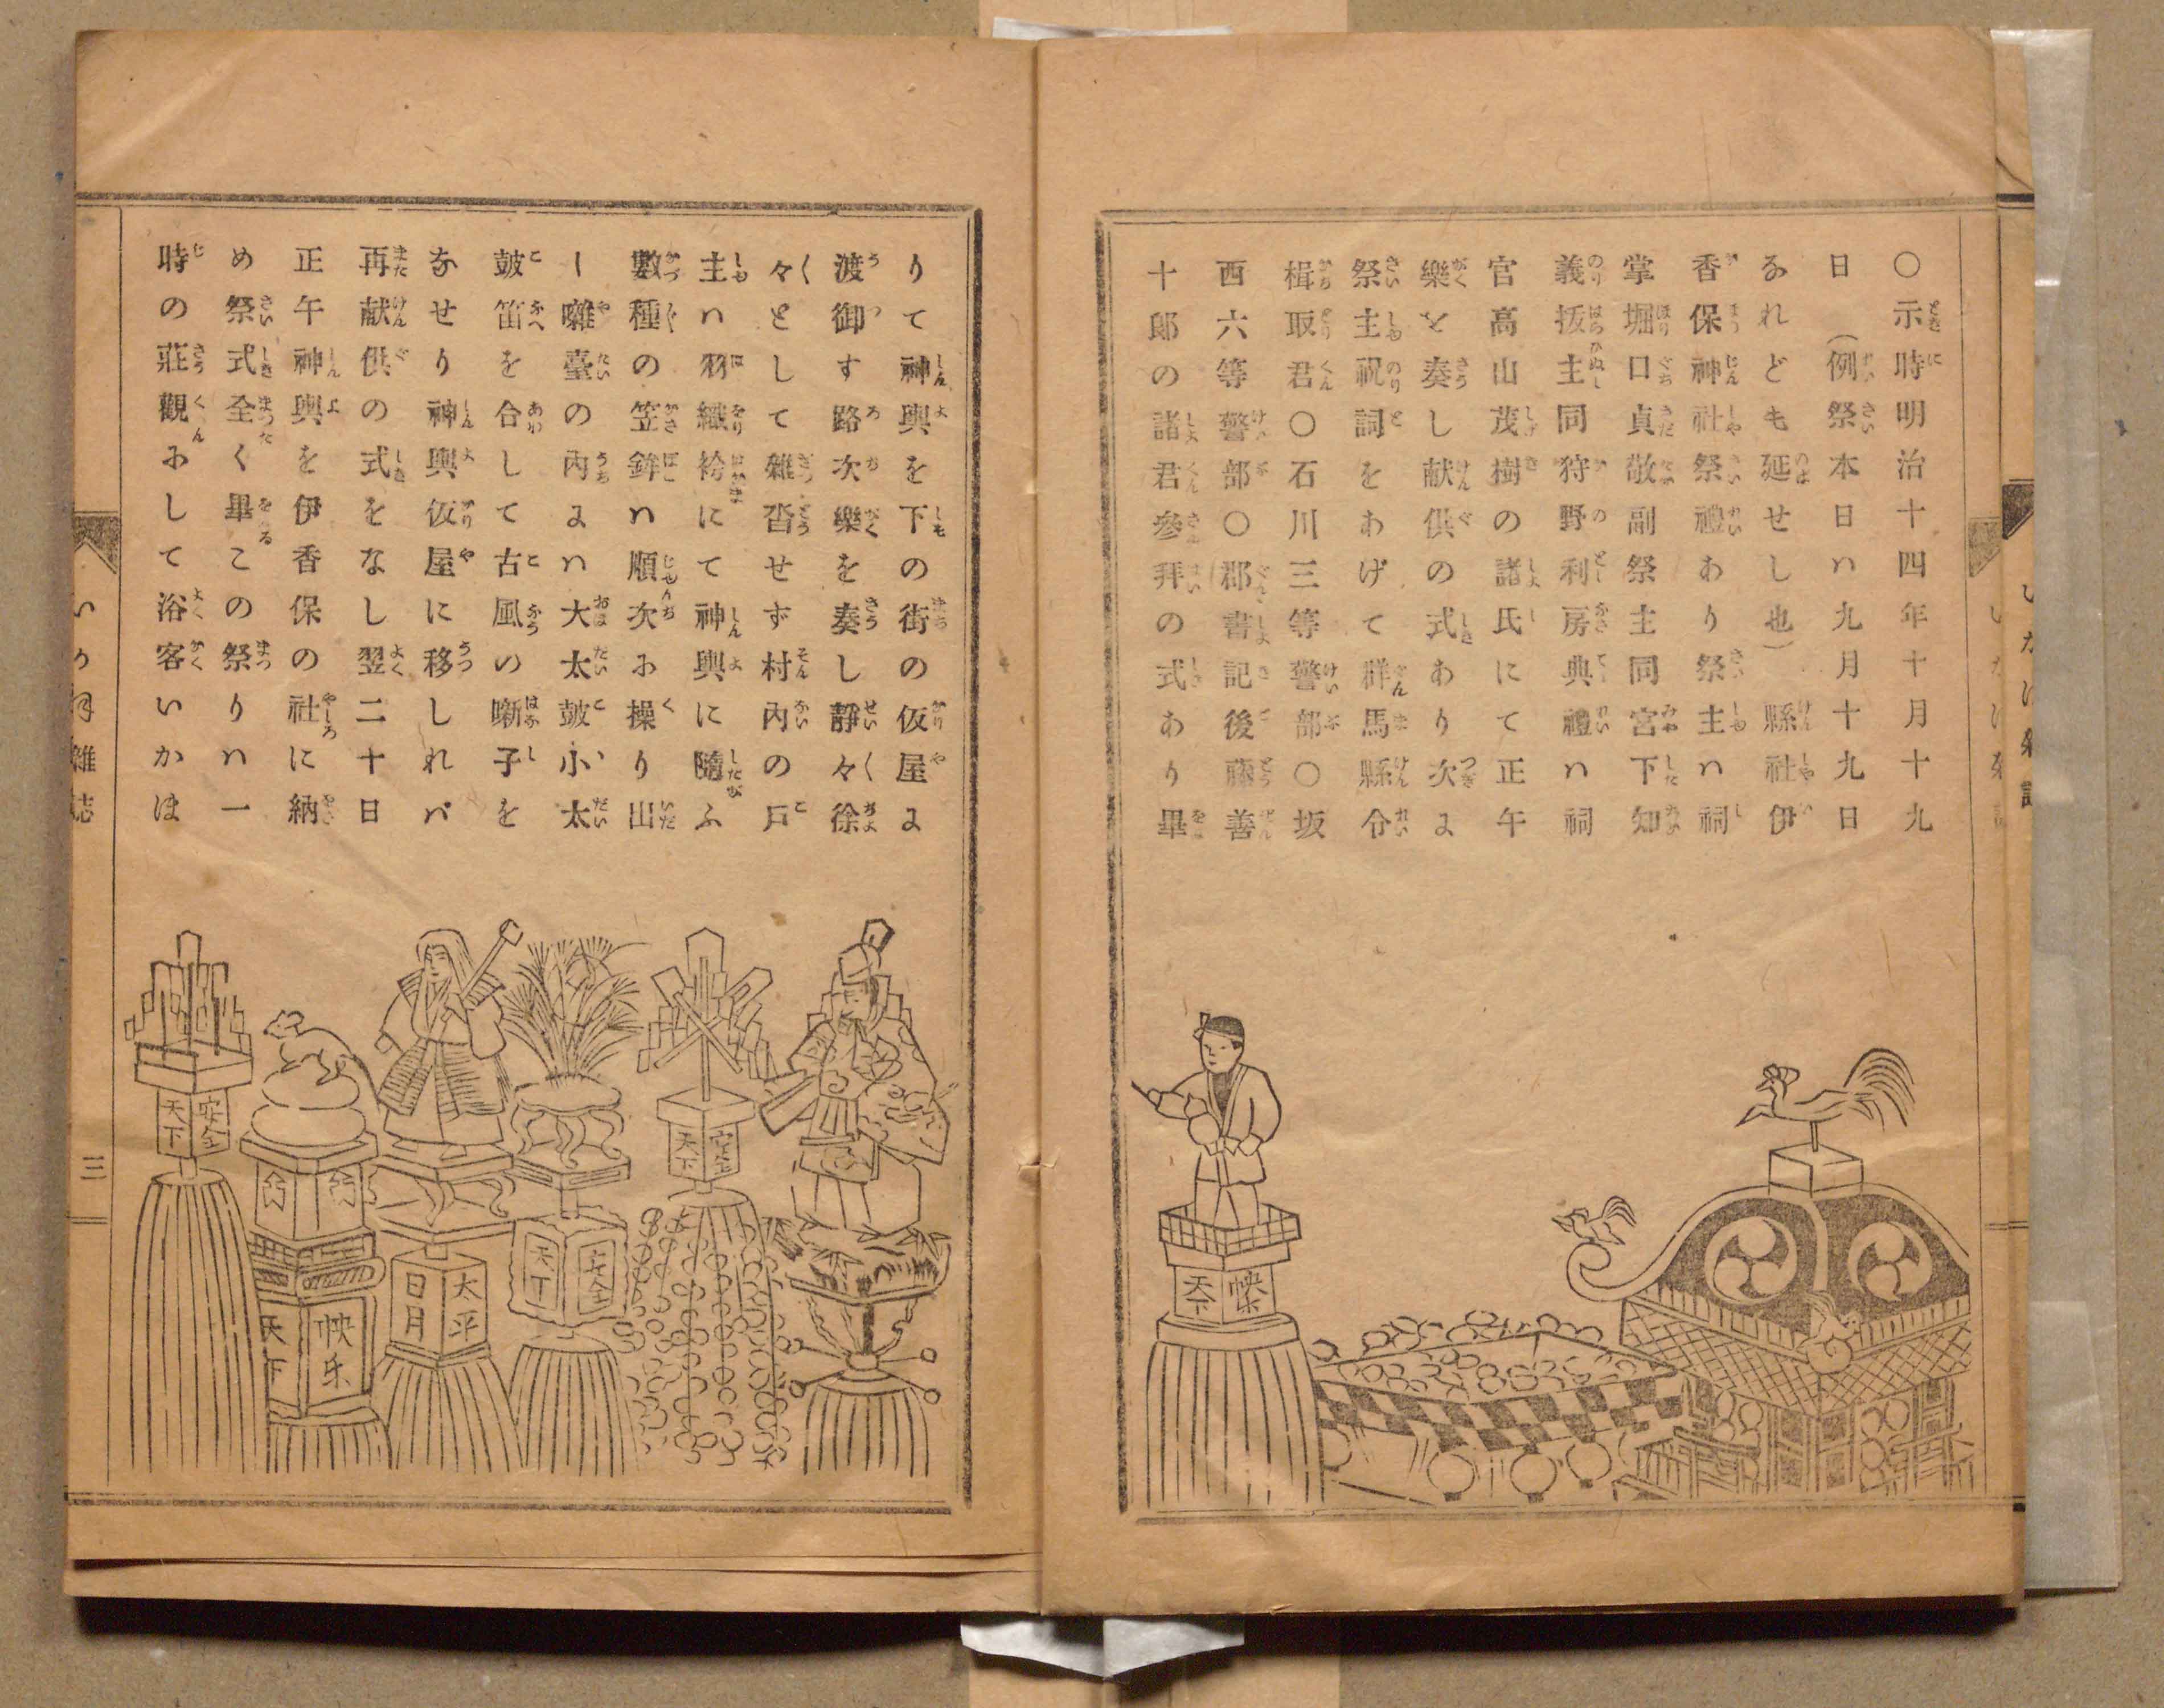 〇示時明治十四年十月十九
日(例祭本日ハ九月十九日
なれども延せし也)縣社伊
香保神社祭禮あり祭主ハ祠
掌堀口貞敬副祭主同宮下知
義抜主同狩野利房典禮ハ祠
官高山茂樹の諸氏にて正午
樂を奏し献供の式あり次に
祭主祝詞をあげて群馬縣令
楫取君〇石川三等警部〇坂
西六等警部〇郡書記後藤善
十郎の諸君參拜の式あり畢
りて神輿を下の街の仮屋に
渡御す路次樂を奏し靜々徐
々として雜沓せず村内の戸
主ハ羽織袴にて神輿に隨ふ
數種の笠鉾ハ順次に操り出
し囃臺の内にハ大太皷小太
皷笛を合して古風の囃子を
なせり神輿仮屋に移しれバ
再献供の式をなし翌二十日
正午神輿を伊香保の社に納
め祭式全く畢この祭りハ一
時の莊觀にして浴客いかほ
雜誌
三
天下 快樂
天下 安全
天下 安全
日月 太平
天下 快乐
天下 安全